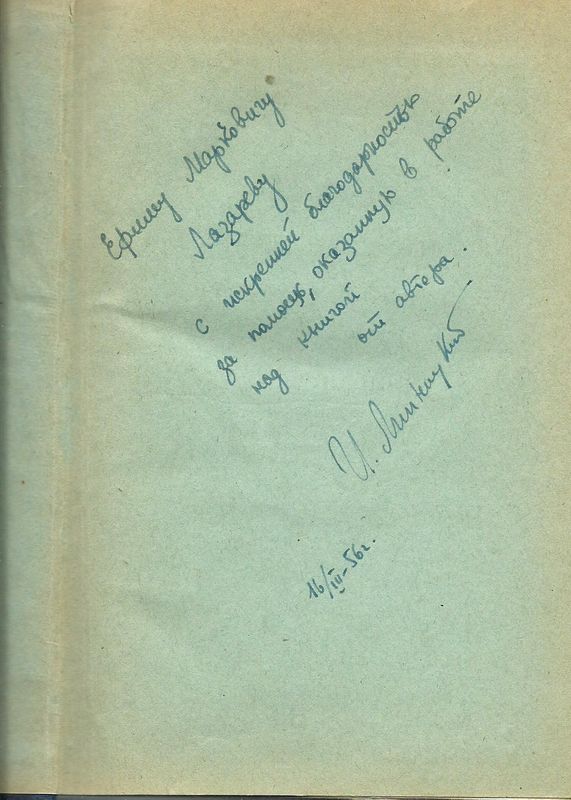 Ефиму Марковичу
Лазареву
с искренней благодарностью
за помощь, оказанную в работе
над книгой
от автера.
И.
16/III-56г.